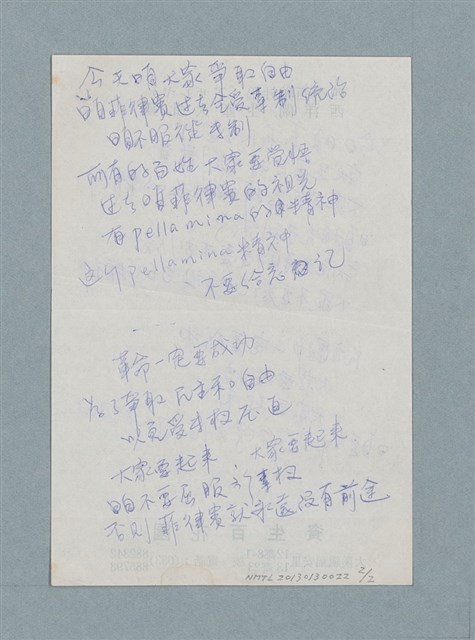 今天咱大家爭取自由
咱菲律賓过去全受專制統治
咱不服從专制
所有的百姓大家要覚悟
过去咱菲律賓的祖先
有pellamina的精神
这个pellamina精神
不要給忘記
革命一定要成功
为了爭取民主和自由
以免受才权压迫
大家要起来 大家要起来
咱不要屈服於權
否則菲律賓就永遠沒有前途
NMTL20130130022 2/2